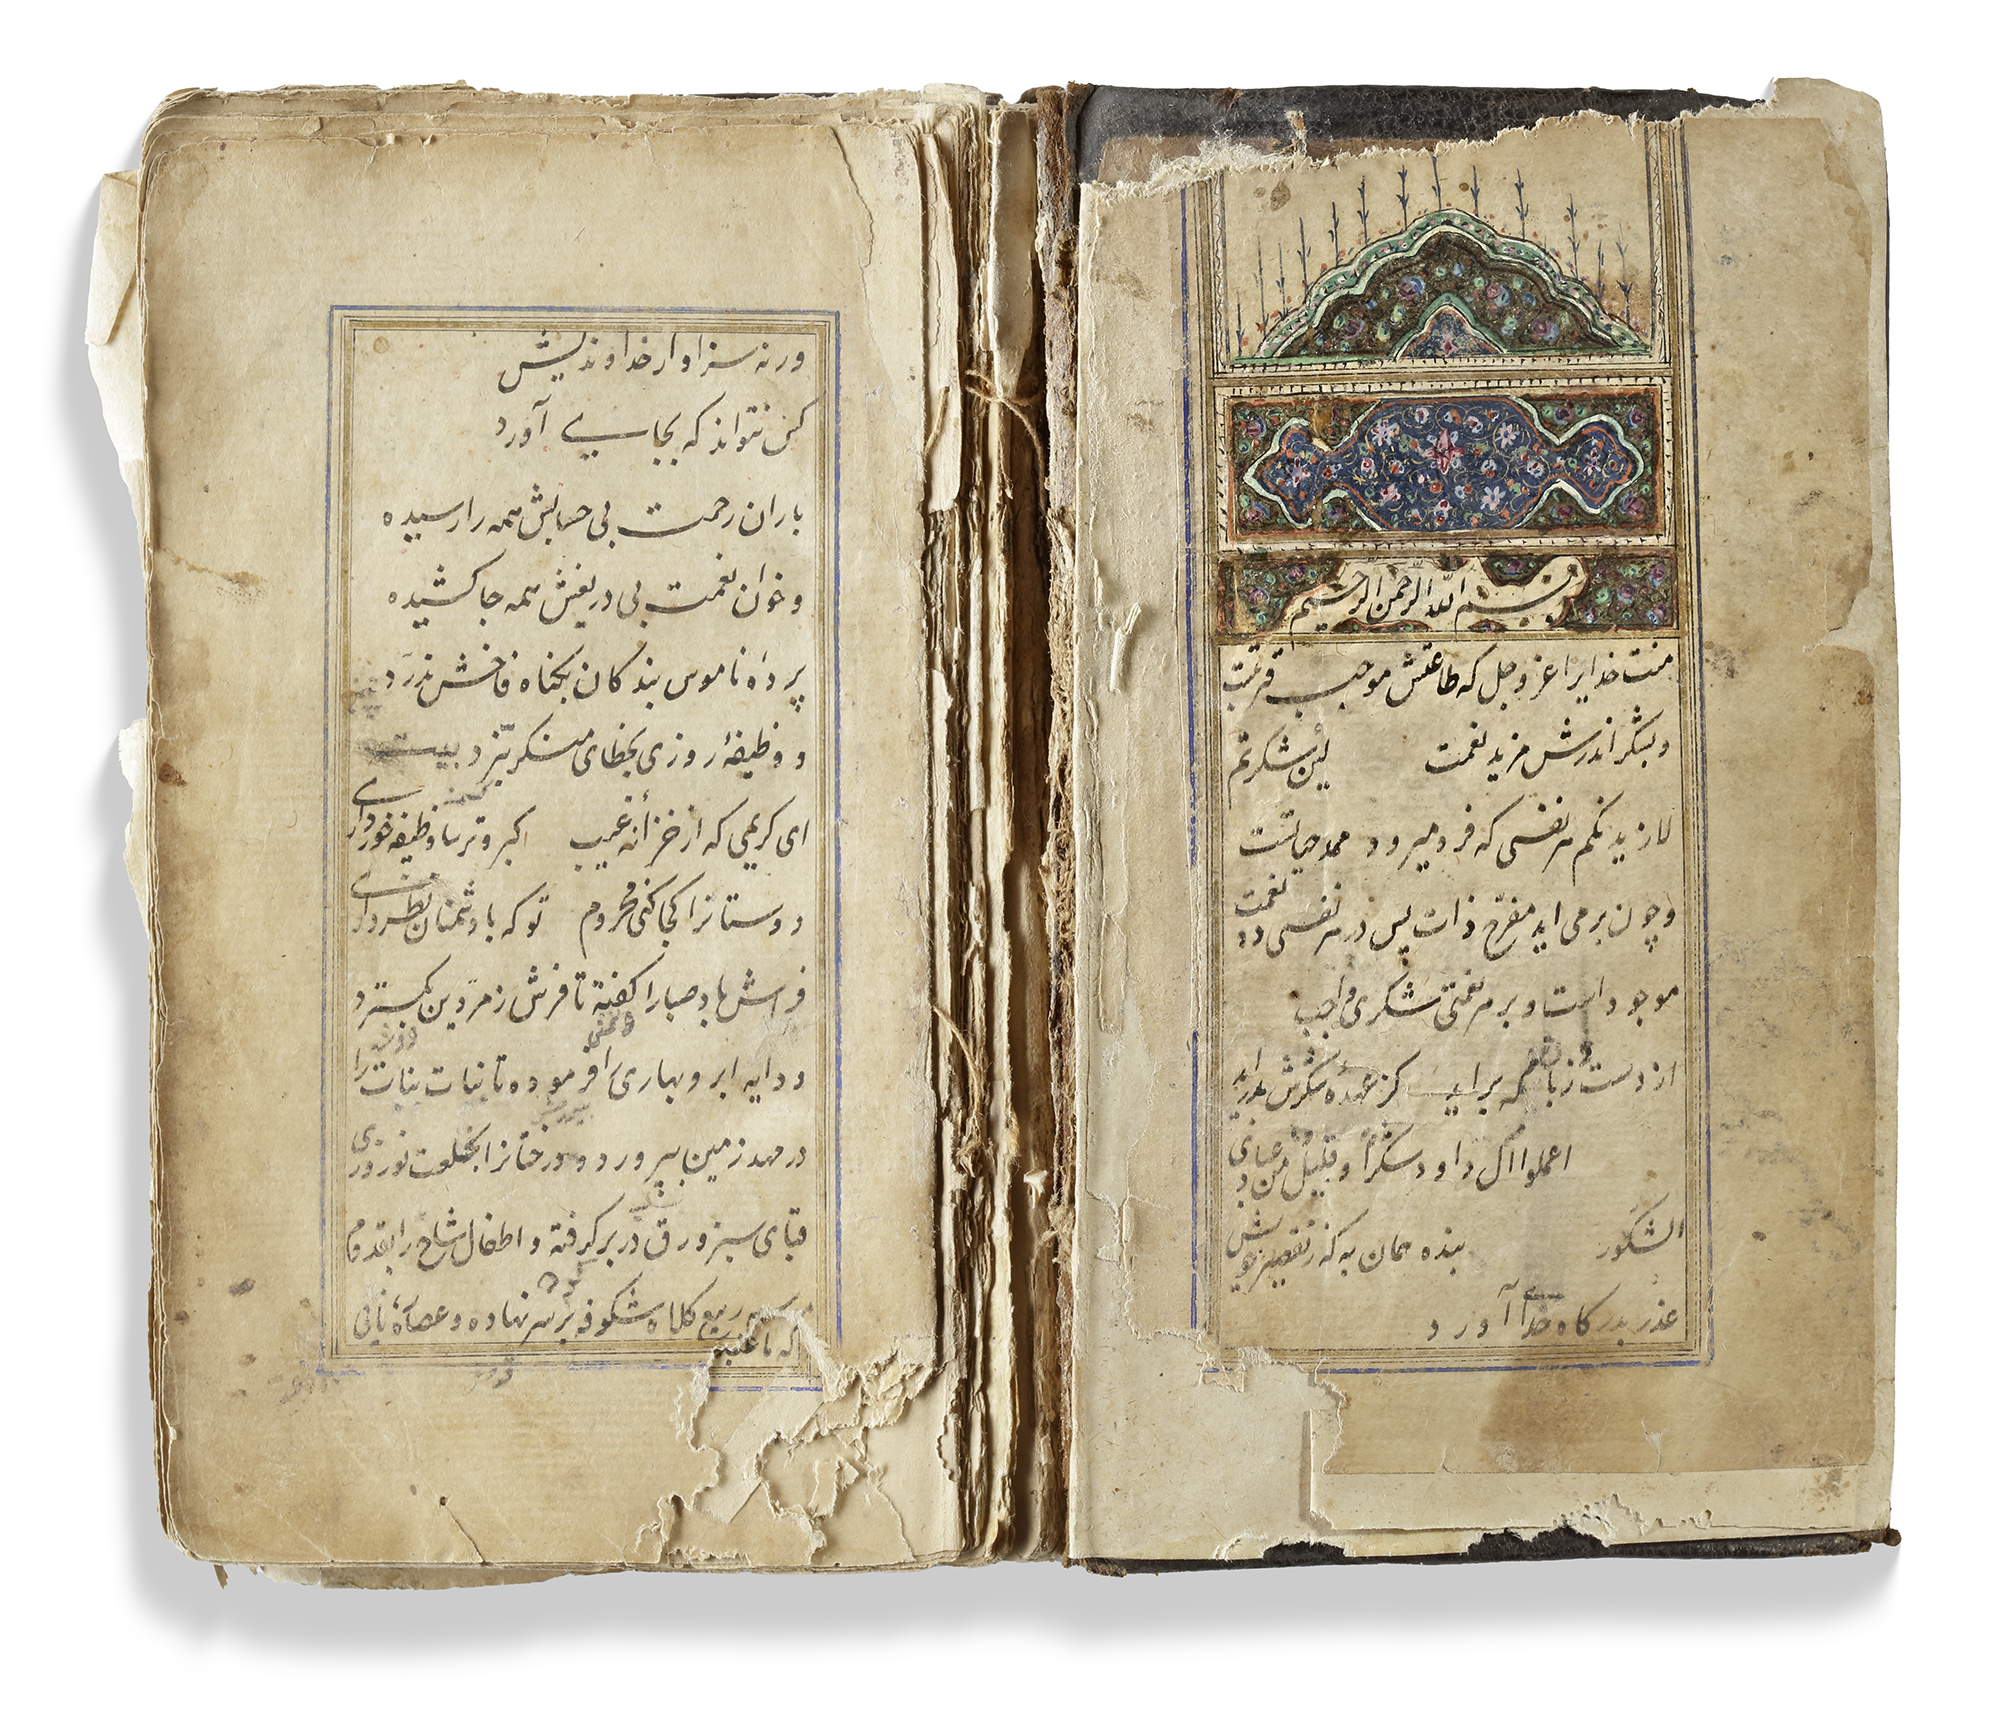 بسم الله الرحمن الرحیم
منت خدایرا عز و جل که طاعتش موجب قربتست
و بشکر اندرش مزید نعمت لئن شکرتم
لازیدنکم هر نفسی که فرو میرود ممد حیاتست
و چون برمی اید مفرح ذات پس در هر نفسی دو نعمت
موجود است و بر هر نعمتی شکری واجب
از دست و زبان که براید کز عهده شکرش بدر اید
اعملوا ال داود شکرا و قلیل من عبادی
الشکور بنده همان به که ز تقصیر خویش
عذر بدرگاه خدا آورد
ورنه سزاوار خداوندیش
کس نتواند که بجای آورد
باران رحمت بی حسابش همه را رسیده
و خوان نعمت بی دریغش همه جا کشیده
پرده ناموس بندکان بکناه فاحش ندرد
و وظیفهٔ روزی بخطای منکر نبرد بیت
ای کریمی که از خزانه غیب کبر و ترسا وظیفه خور داری
دوستانرا کجا کنی محروم تو که با دشمنان نظر داری
فراش باد صبا را کفته تا فرش زمردین بکسترد
و دایه ابر و بهاری را فرموده تا نبات بنات را
در مهد زمین بپرورد و درختانرا بخلعت نوروزی
قبای سبز ورق در بر کرفته و اطفال شاخ را بقدوم
ربیع کلاه شکوفه بر سر نهاده و عصاره نایی